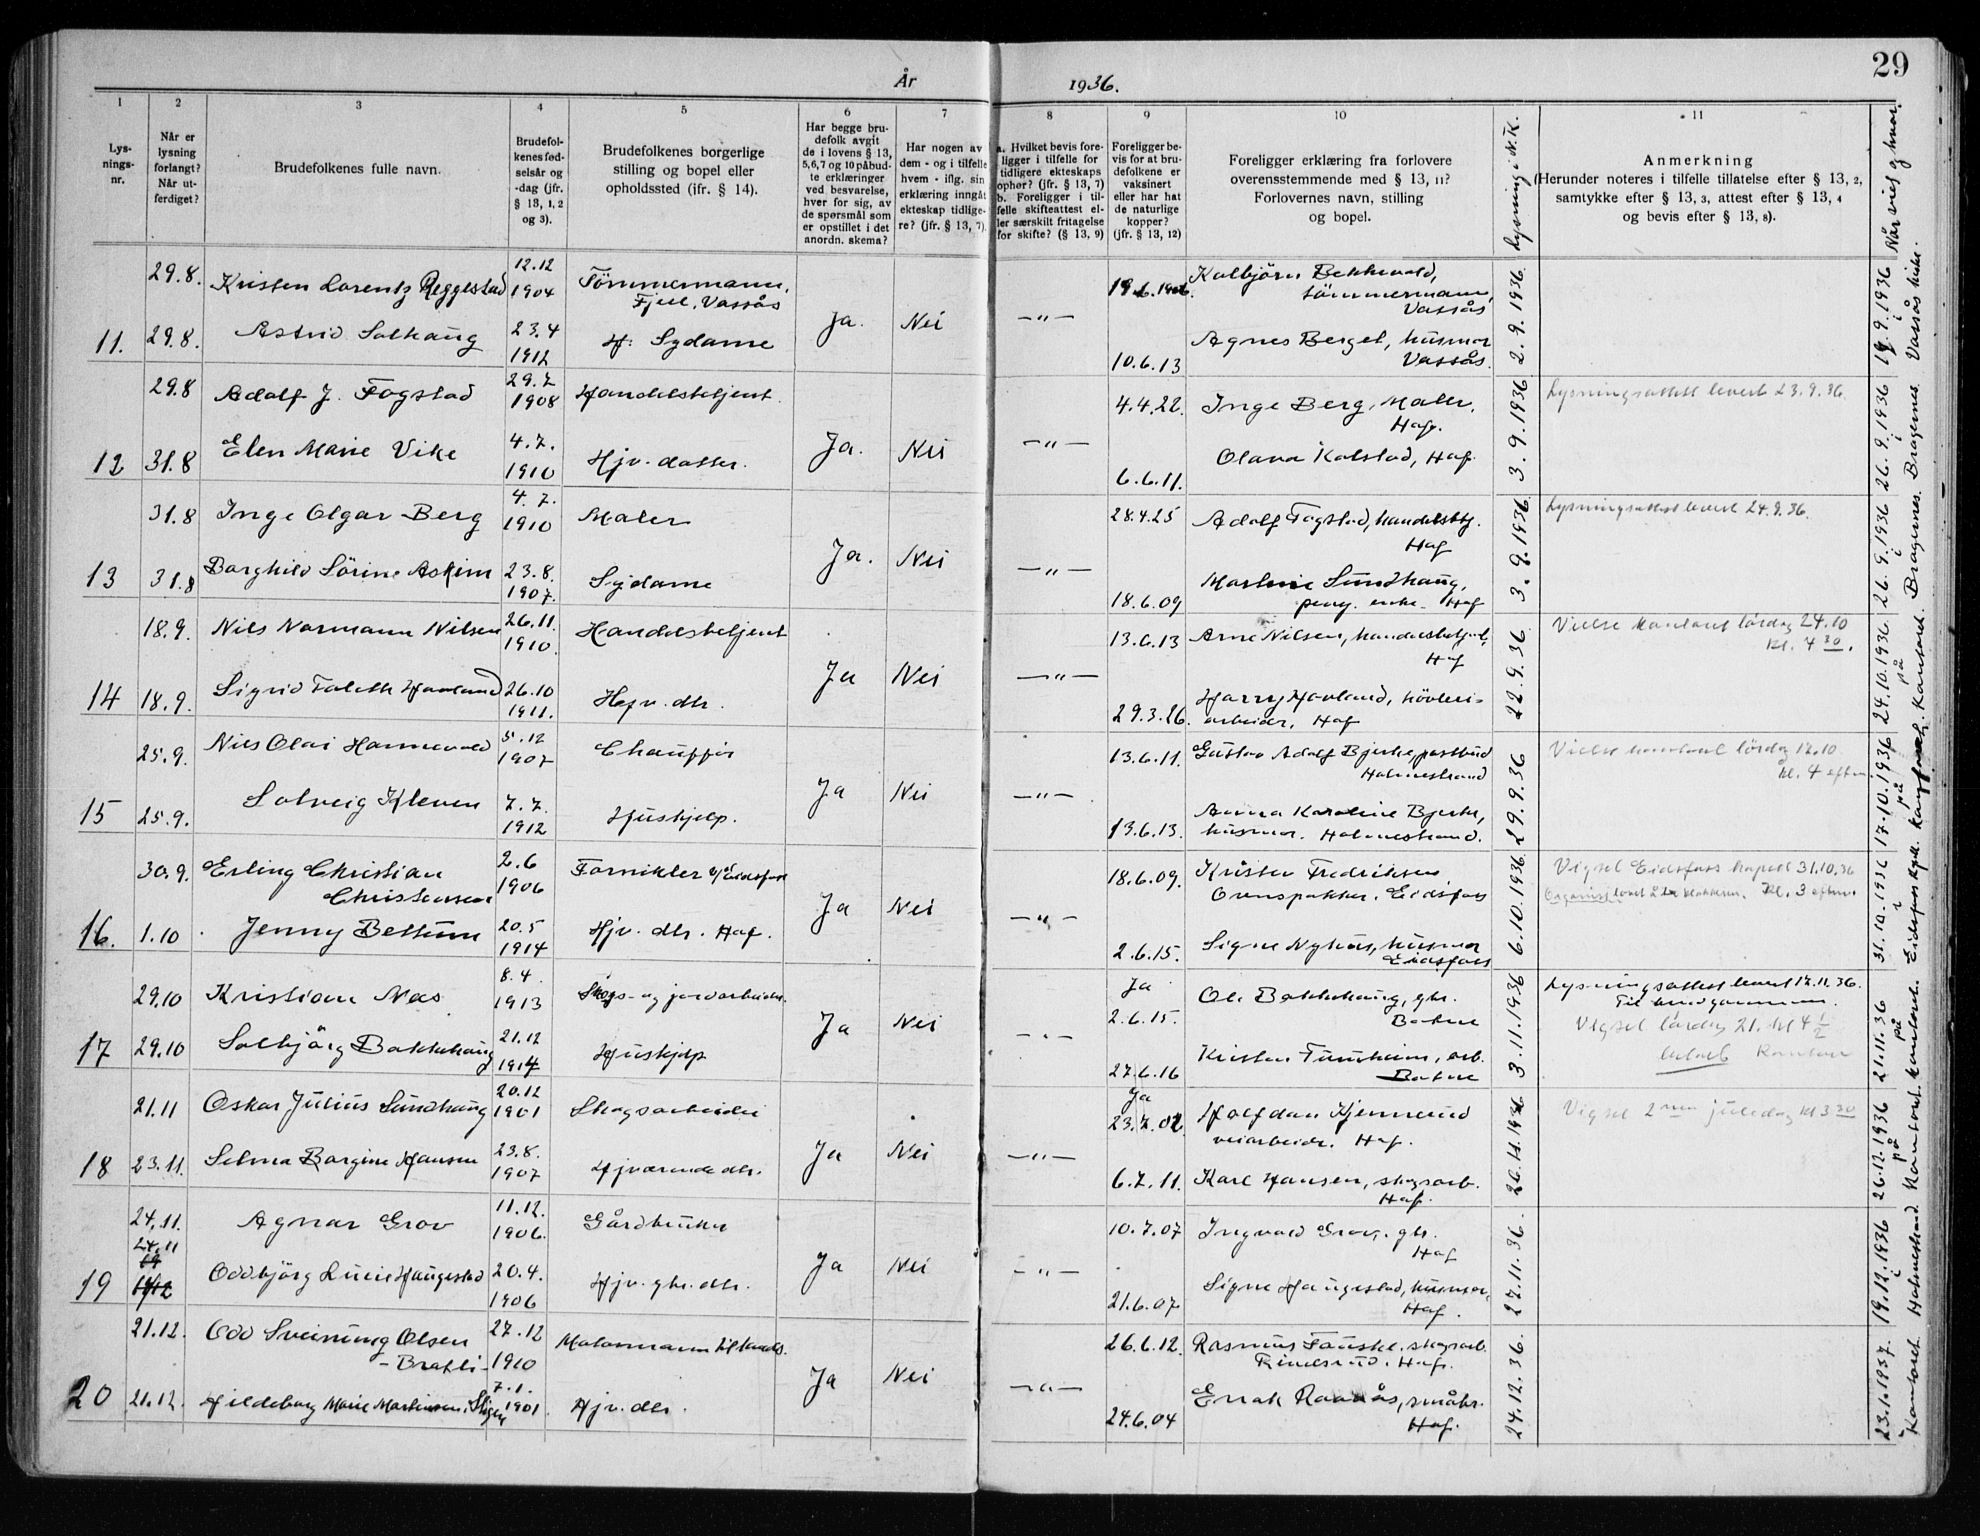 29
År 1936.
1 2 3 4 5 6 7 8 9 10 11
Lys-
nings-
nr.
Når er
lysning
forlangt?
Når ut-
ferdiget?
Brudefolkenes fulle navn.
Brudefol-
kenes fød-
selsår og
-dag (jfr.
§ 13, 1, 2
og 3).
Brudefolkenes borgerlige
stilling og bopel eller
opholdssted (ifr. § 14).
Har begge bru-
defolk avgit
de i lovens § 13,
5, 6, 7 og 10 påbud-
te erklæringer
ved besvarelse,
hver for sig, av
de spørsmål som
er opstillet i det
anordn. skema?
Har nogen av
dem - og i tilfelle
hvem - iflg. sin
erklæring inngåt
ekteskap tidlige-
re? (jfr. § 13, 7).
a. Hvilket bevis fore-
ligger i tilfelle for
tidligere ekteskaps
ophør? (jfr. § 13, 7)
b. Foreligger i til-
felle skifteattest el-
ler særskilt fritagelse
for skifte? (§ 13, 9)
Foreligger be-
vis for at bru-
defolkene er
vaksinert
eller har hat
de naturlige
kopper?
(jfr. § 13, 12)
Foreligger erklæring fra forlovere
overensstemmende med § 13, 11?
Forlovernes navn, stilling
og bopel.
Lysning i N.K.
Anmerkning
(Herunder noteres i tilfelle tillatelse efter § 13, 2,
samtykke efter § 13, 3, attest efter § 13, 4
og bevis efter § 13, 8).
Når viet og hvor.
29.8. Kristen Lorentz Reggestad 12.12 1904 Tömmermann, Fjell, Vassås 19.6.1906. Kolbjörn Bekkevold, tömmermann, Vassås
11. 29.8. Astrid Solhaug 23.4 1912 Hf. Sydame Ja. Nei —"— 10.6.13 Agnes Berget, husmor Vassås. 2.9.1936 19.9.1936 i Vassås kirke.
29.8 Adolf J. Fogstad 29.7 1908 Handelsbetjent. 4.4.22. Inge Berg, Maler, Hof. Lysningsattest levert 23.9.36.
12 31.8 Elen Marie Vike 4.7. 1910 Hjv. datter. Ja. Nei —"— 6.6.11. Olava Kolstad, Hof. 3.9.1936 26.9.1936 i Bragernes.
31.8 Inge Olgar Berg 4.7. 1910 Maler 28.4.25 Adolf Fogstad, handelsbtj. Hof Lysningsattest levert 24.9.36.
13 31.8 Borghild Sörine Askim 23.8. 1907. Sydame Ja. Nei —"— 18.6.09 Marthine Sundhaug, penj. enke. Hof 3.9.1936 26.9.1936 i Bragernes.
18.9. Nils Normann Nilsen 26.11. 1910. Handelsbetjent 13.6.13 Arne Nilsen, handelsbetjent, Hof Vielse kontoret lördag 24.10 kl. 4 30.
14 18.9. Sigrid Haavland 26.10 1911. Hjv. dtr. Ja Nei —"— 29.3.26. Harry Hovland, hövleri-arbeider, Hof 22.9.36 24.10.1936. på Kontoret.
25.9. Nils Olai Hannevold 5.12 1907 Chaufför 13.6.11. Gustav Adolf Bjerke, postbud Holmestrand Vielse kontoret lördag 17.10. kl. 4 eftm
15 25.9. Solveig Kleven 7.7. 1912 Hushjelp. Ja Nei —"— 13.6.13. Anna Karoline Bjerke, husmor. Holmestrand. 29.9.36 17.10.1936 på
30.9. Erling Christian Christensen 2.6 1906 Fornikler v/Eidsfoss 18.6.09. Krister Fredriksen Ovnspakker. Eidsfoss Vigsel Eidsfoss kapell 31.10.36 kl. 3 eftm.
16. 1.10 Jenny Bettum 20.5 1914 Hjv. dtr. Hof. Ja Nei —"— 2.6.15. Signe Nyhus, husmor Eidsfoss 6.10.1936. 31.10.1936 i Eidsfoss kpll.
29.10 Kristian Nes 8.4. 1913 Skogs- og jordarbeider. Ja 2.6.15. Ole Bakkehaug, gbr. Botne Lysningsattest levert 17.11.36. Til brudgommen.
17 29.10 Solbjörg Bakkehaug 21.12 1914 Hushjelp Ja Nei 27.6.16 Kristen Tumheim, arb. Botne 3.11.1936 Vigsel lördag 21. kl 4 1/2 21.11.36 på kontoret.
21.11 Oskar Julius Sundhaug 20.12 1901 Skogsarbeider Ja 23.7.02 Halfdan Kjennerud veiarbeider. Hof. Vigsel 2nen juledag kl 3 30
18 23.11. Selma Borgine Hansen 23.8. 1907 Hjværende dtr. Ja Nei —"— 6.7.11. Karl Hansen, skogsarb. Hof. 26.11.1936 26.12.1936 på Kontoret.
24.11. Agnar Grov 11.12. 1906. Gårdbruker 10.7.07 Ingvald Grov, gbr. Hof
24.11
19 Oddbjörg Lucie Haugestad 20.4. 1906 Hjv. gbr. dtr. Ja Nei —"— 21.6.07 Signe Haugestad, husmor, Hof. 27.11.36. 19.12.1936 i Holmestrand.
21.12. Odd Sveinung Olsen - Bratli - 27.12 1910 26.6.12. Rasmus Fauske, skogsarb. Hof.
20 21.12. Hildeborg Marie Martinsen 7.1. 1901. Hjv. dtr. Ja Nei —"— 24.6.04 Enok Raanås, småbr. Hof. 24.12.36. 23.1.1937. Kontoret.